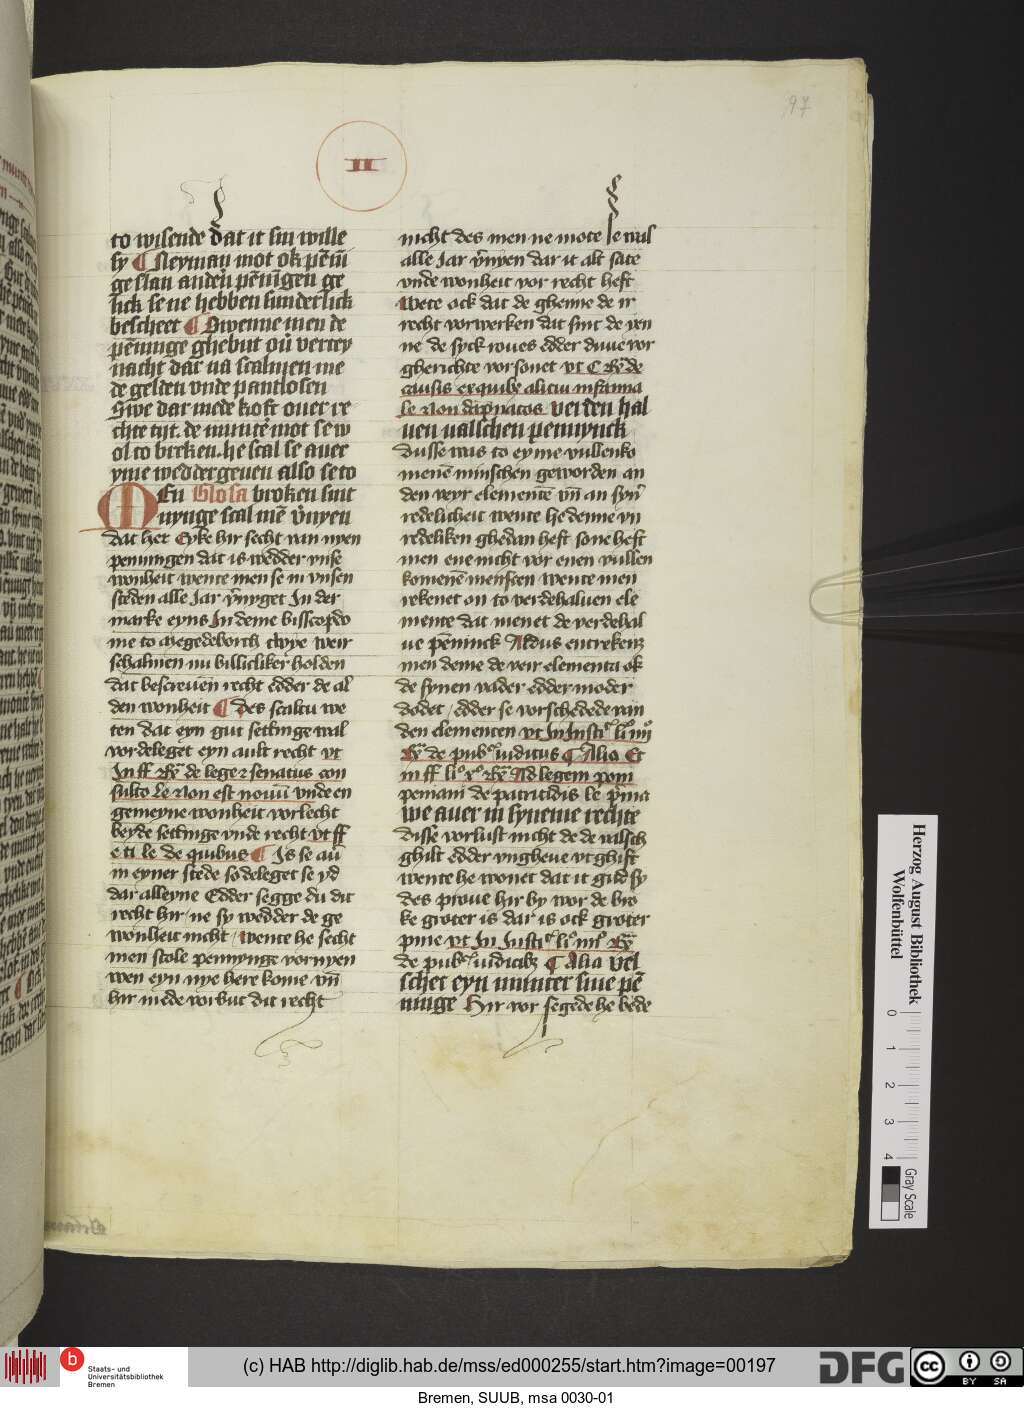 97
II
to wisende dat it sin wille
sy ¶ Neyman mot ok pēnī
ge slan andeñ pēnīgen ge
lick se ne hebben sunderlick
bescheet ¶ Swenne men de
pēninge ghebut ou̅ vertey
nacht dar na scalmen me
de gelden vnde pantlosen
Swe dar mede koft ouer re
chte tijt. de munte mot se w
ol to breken. he scal se auer
yme wedder geuen also se to
MEn Glosa broken sint
nynge scal mē v̄nyen
dat het Eyke hir secht van nyen
penningen dat is wedder vnse
wonheit wente men se in vnsen
steden alle Jar v̄nyget In der
marke eyns In deme bisscopdo
me to Megedeborch twye weir
schalmen nu billicliker holden
dat bescreuen recht edder de al
den wonheit ¶ des scaltu we
ten dat eyn gut settinge wal
vordeleget eyn ault recht vt
In ff Rx̄ de legez senatus con
sulto le Non est nouū vnde en
gemeyne wonheit vorlecht
beyde settinge vnde recht vt ff
e ti le de quibus ¶ Is se au̅
in eyner stede so deleget se yd
dar alleyne Edder segge du dit
recht hir ne sy wedder de ge
wonheit nicht wente he secht
men scole pennynge vornyen
wen eyn nye here kome vn̄
hir mede vorbut dit recht
nicht des men ne mote se wal
alle Jar v̄nyen dar it alt sate
vnde wonheit vor recht heft
wete ock dat de ghenne de ir
recht vorwerken dat sint de jen
ne de syck roues edder duue vor
gherichte vorsonet vt C Rx̄ de
causis ex quibz alicui infamia
le Non dāpnatos Verden hal
uen valschen pennynck
Dusse was to eyme vullenko
menē minschen geworden an
den veyr elementē vn̄ an syn̄
redelicheit wente he denne vn
redeliken ghedan heft so ne heft
men ene nicht vor enen vullen
komenē menscen wente men
rekenet on to verdehaluen ele
mente dat menet de verdehal
ue pēninck Aldus entrekenz
men deme de veir elementa ok
de synen vader edder moder
dodet edder se vorschedede van
den elementen vt In Insti⁹ li⁰ iiij⁰
Rx̄ de pub⁰ iudicus ¶ Alia Et
in ff li⁰ x⁰ Rx̄ Ad legem pom
peniani de patricidis le p̄ma
we auer in syneme rechte
Disse vorlust nicht de de valsch
ghilt edder vngheue vt ghift
wente he wonet dat it gud sy
des proue hir by wor de bro
ke groter is dar is ock groter
pine vt In Insti⁹ li⁰ iiij⁰ Rx̄
de pub⁰ iudicibz ¶ Alia Vel
schet eyn munter sine pē
ninge Hir vor segede he bede
Herzog August Bibliothek
Wolfenbüttel
0 1 2 3 4
Gray Scale
b
Staats- und
Universitätsbibliothek
Bremen
(c) HAB http://diglib.hab.de/mss/ed000255/start.htm?image=00197
DFG
cc BY SA
Bremen, SUUB, msa 0030-01